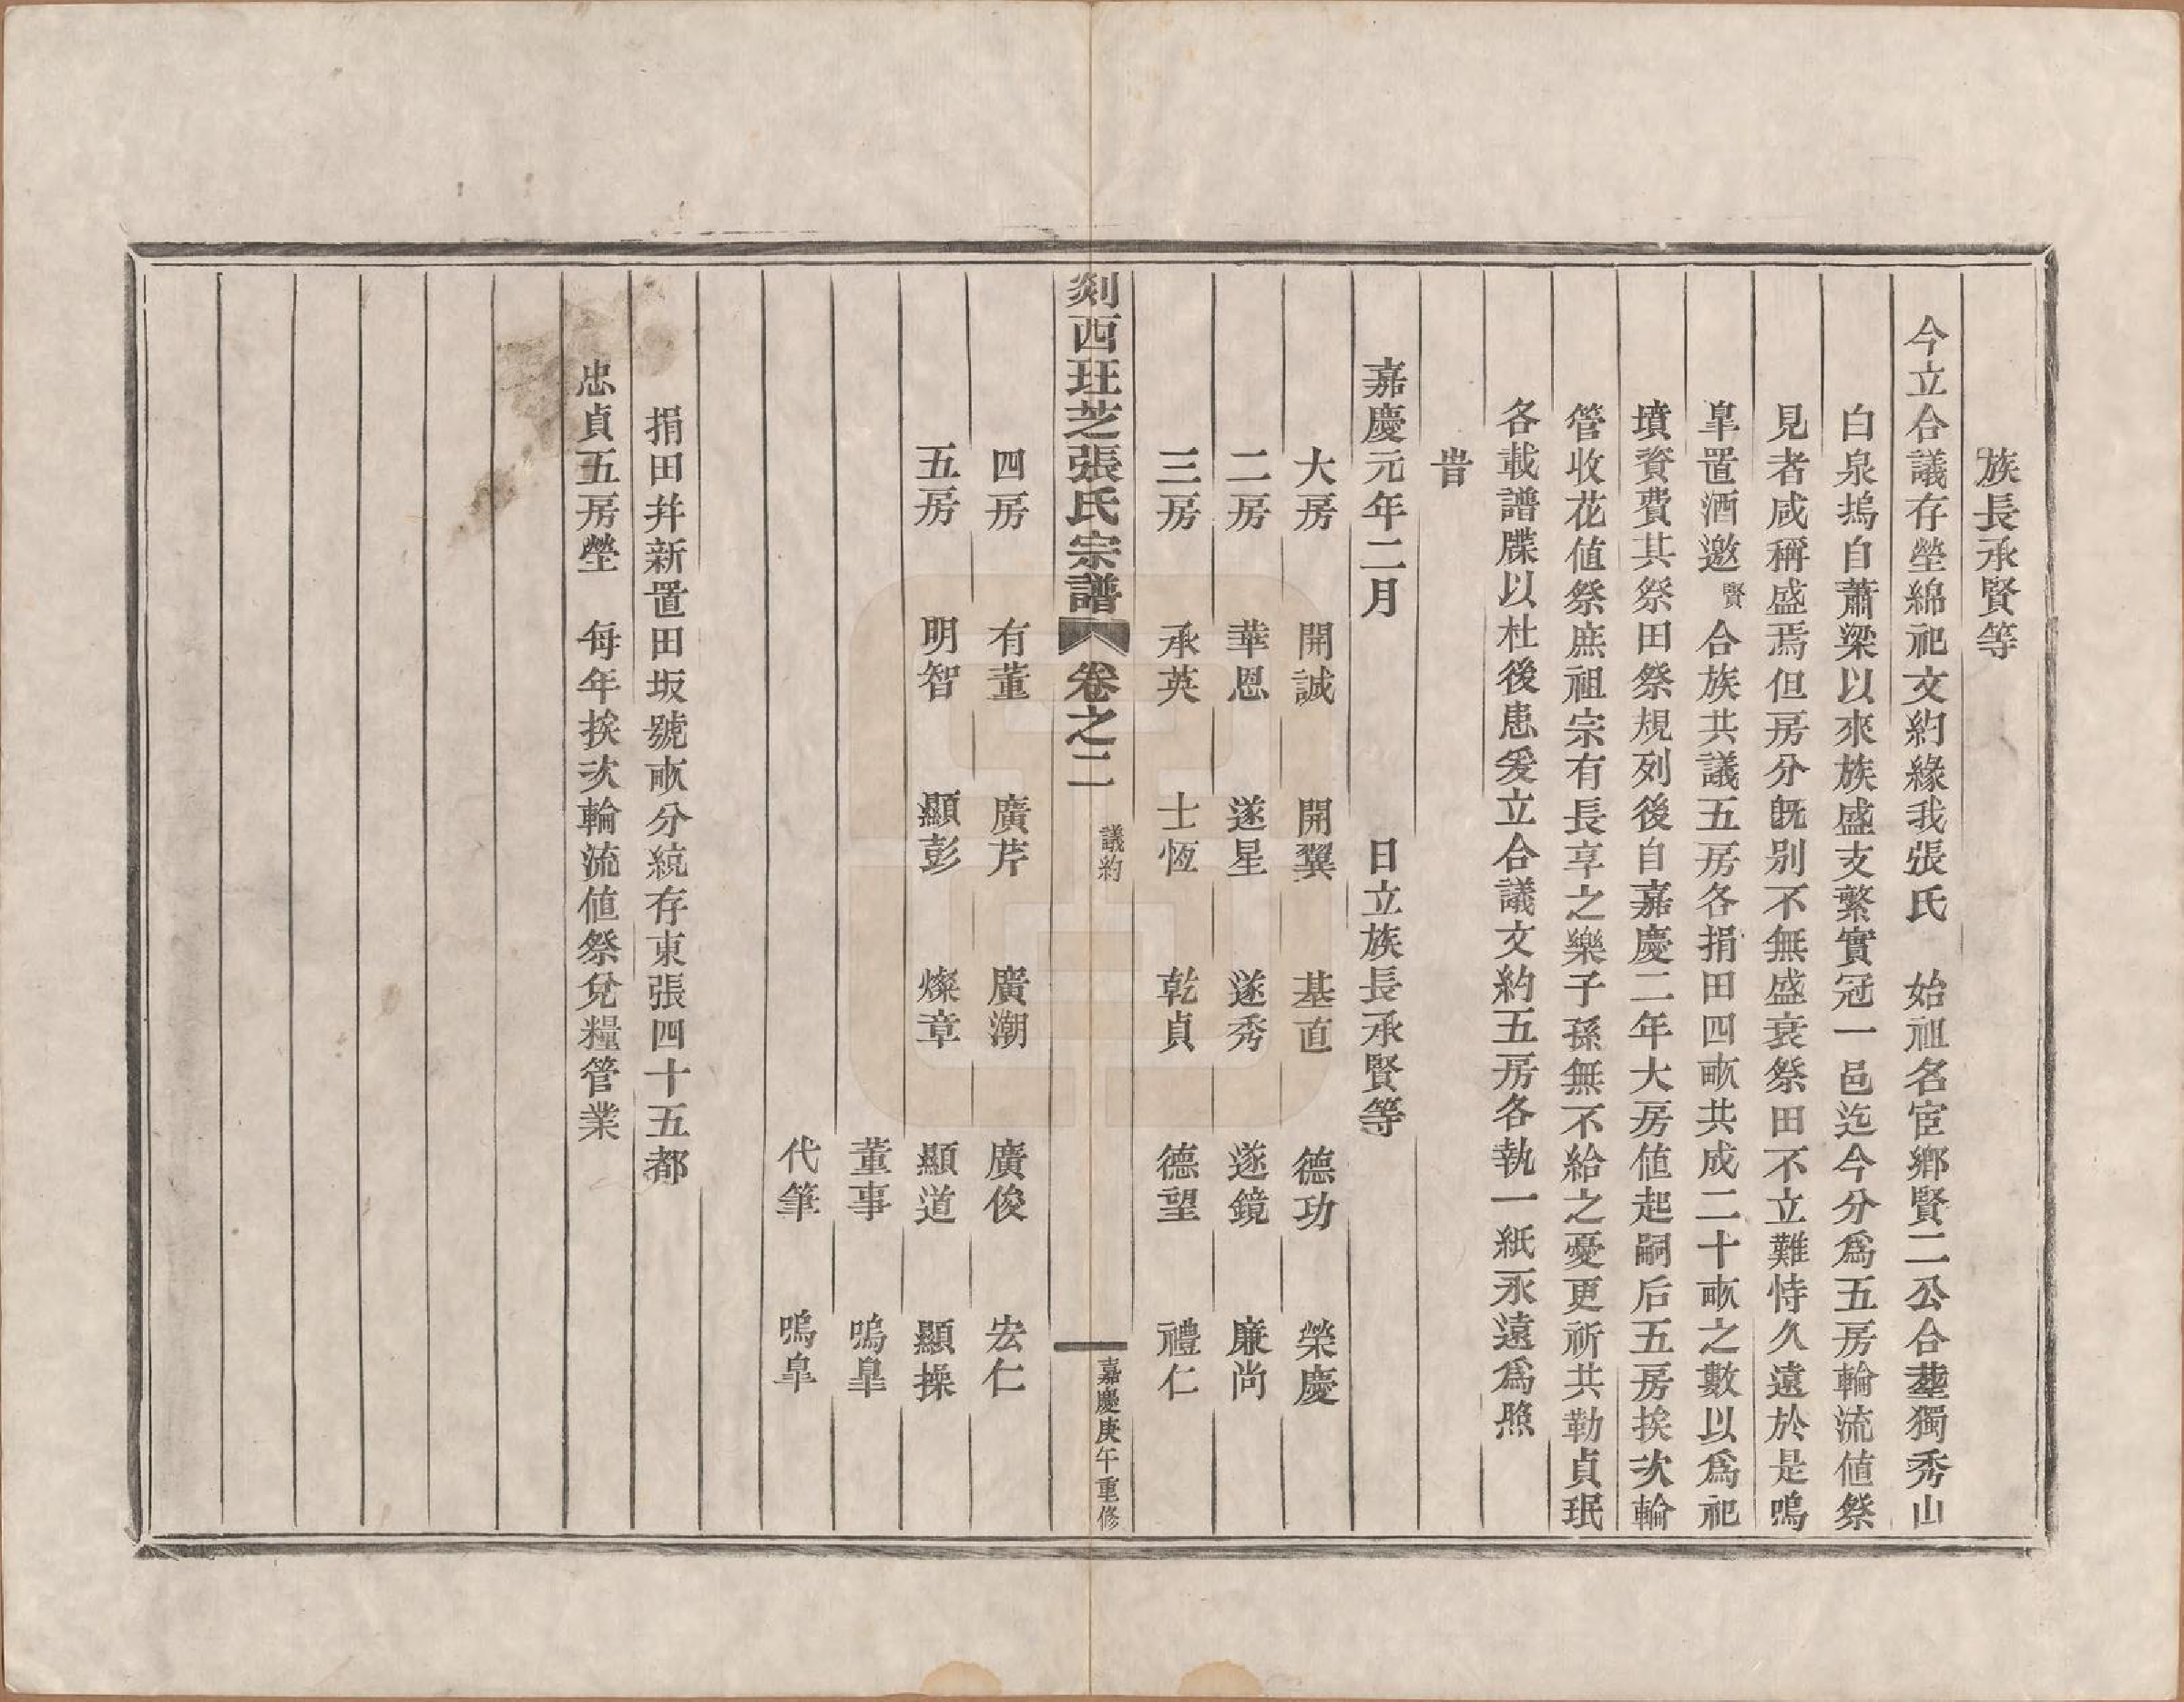 族長承賢等
今立合議存塋綿祀文約緣我張氏　始祖名宦鄉賢二公合塟獨秀山
白泉塢自蕭梁以來族盛支繁實冠一邑迄今分爲五房輪流値祭
見者咸稱盛焉但房分旣别不無盛衰祭田不立難恃久遠於是鳴
臯置酒邀賢合族共議五房各捐田四畝共成二十畝之數以爲祀
墳資費其祭田祭規列後自嘉慶二年大房値起嗣后五房挨次輪
管收花値祭庶祖宗有長享之樂子孫無不給之憂更祈共勒貞珉
各載譜牒以杜後患爰立合議文約五房各執一紙永遠爲照
旹
嘉慶元年二月　日立族長承賢等
大房　開誠　開翼　基直　德功　榮慶
二房　華恩　遂星　遂秀　遂鏡　廉尚
三房　承英　士恆　乾貞　德望　禮仁
剡西玨芝張氏宗譜　卷之二　議約　嘉慶庚午重修
四房　有董　廣芹　廣潮　廣俊　宏仁
五房　明智　顯彭　燦章　顯道　顯操
董事　鳴臯
代筆　鳴臯
捐田幷新置田坂號畝分統存東張四十五都
忠貞五房塋　每年挨次輪流値祭兌糧管業